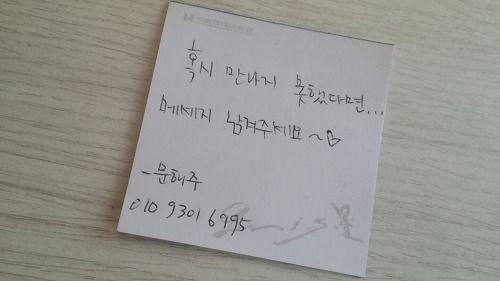 혹시 만나지 못했다면...
메세지 남겨주세요~♡
-문해주
010 9301 6995